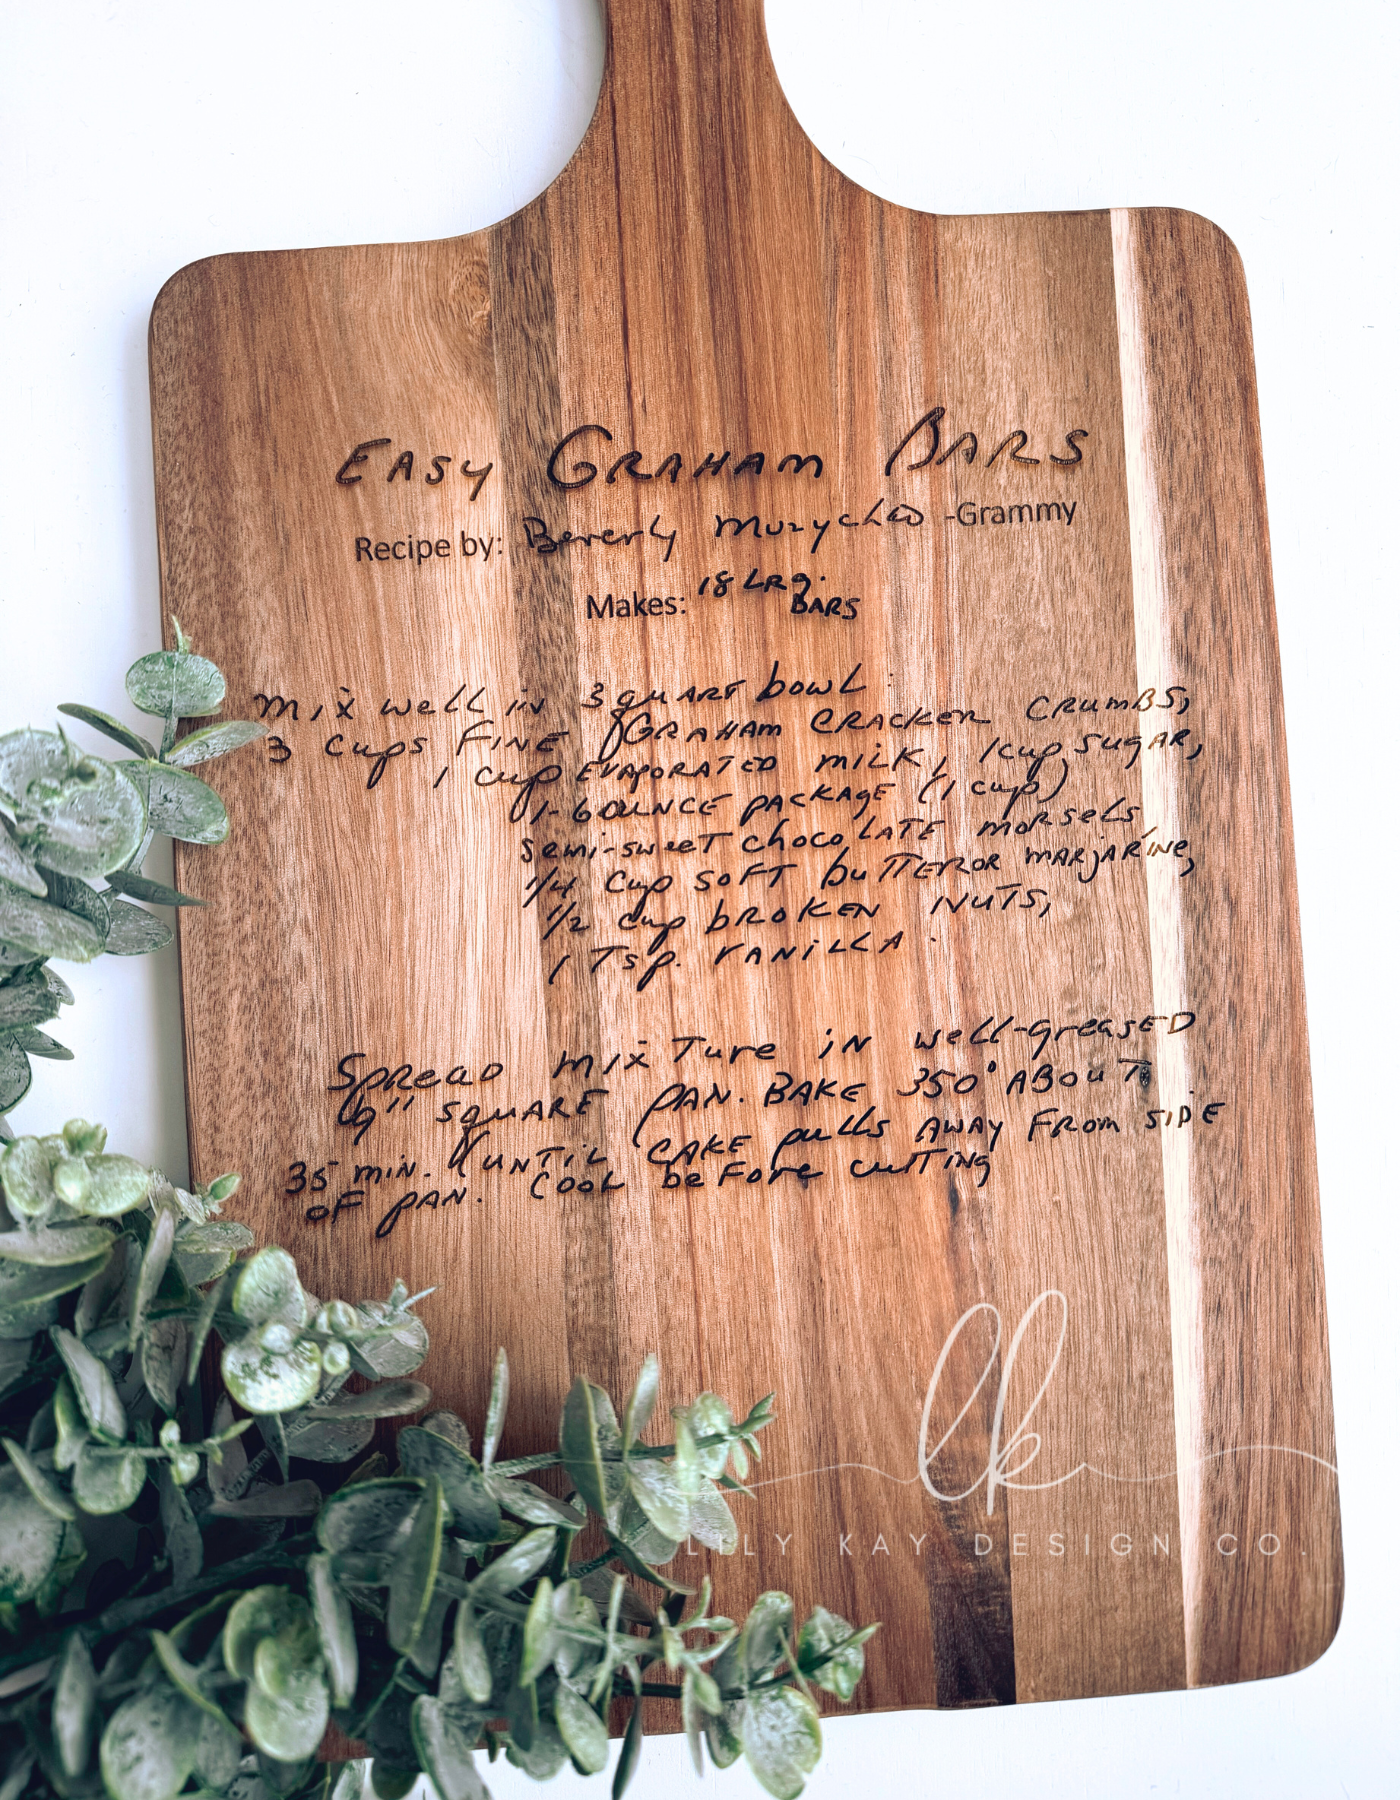 EASY GRAHAM BARS
Recipe by: Beverly -Grammy
Makes: 18 LRg. BARS
mix well in 3 quART bowl:
3 cups FINE GRAHAM CRACKER CRUMBS,
1 cup EVAPORATED milk, 1 cup sugAR,
1-6 OUNCE pACKAgE (1 cup)
semi-sweeT chocoLATE moRsels,
1/4 cup SOFT buTTER OR mARjARINe,
1/2 cup bROKEN NUTS,
1 Tsp. VANiLLA.
SpREAD mixTure iN well-greasED
9" sqUARE pAN. BAKE 350° ABouT
35 miN. (UNTiL CAKE pulls AWAy FRom siDE
OF pAN. Cool beFore cuTTiNg
lk
LILY KAY DESIGN CO.